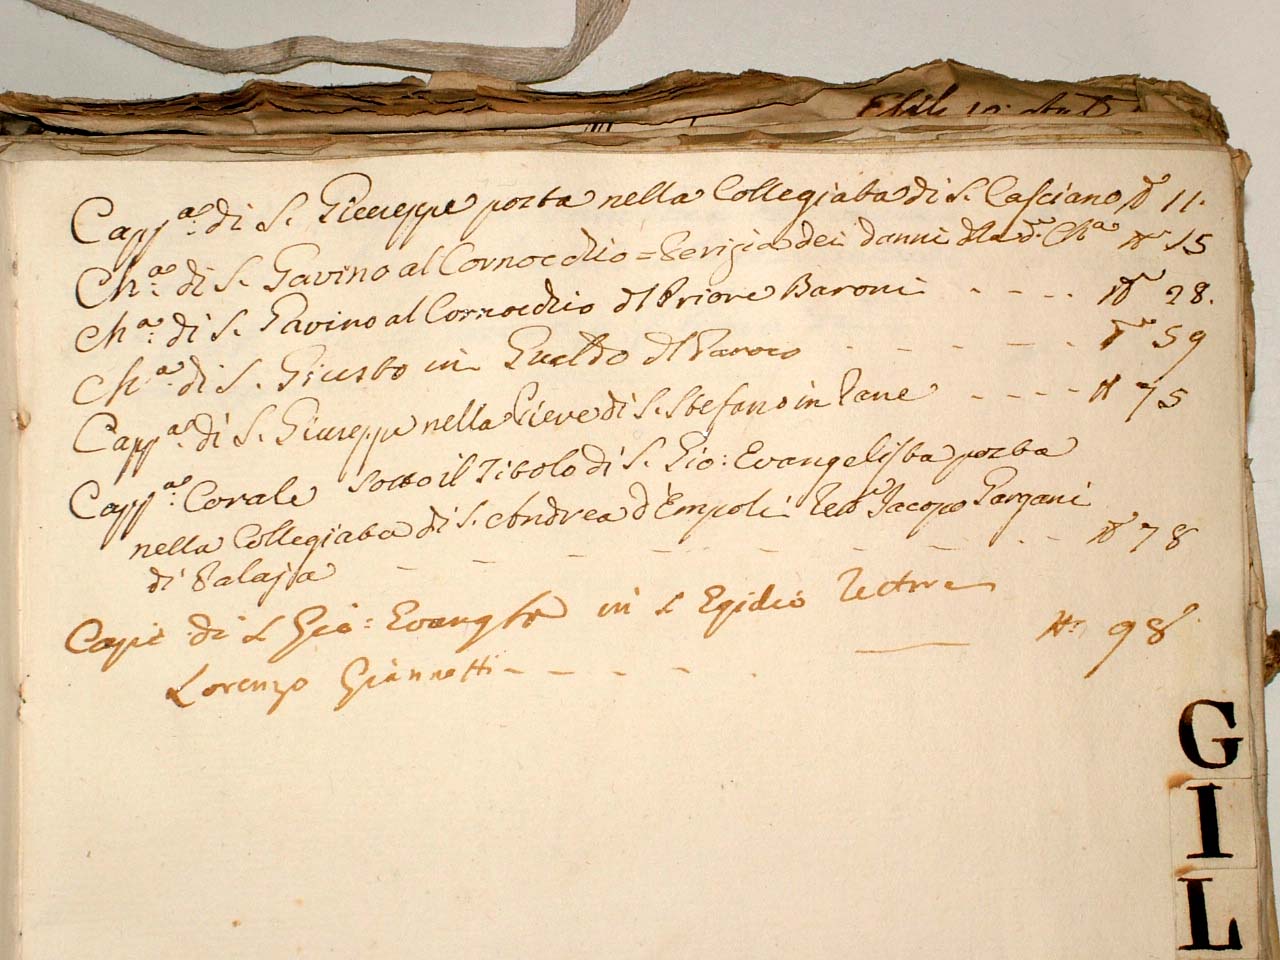 Capp.a di S. Giuseppe posta nella Collegiata di S. Casciano No 11.
Ch.a di S. Gavino al Cornocchio = Perizia dei danni dla d.a Ch.a No 15
Ch.a di S. Gavino al Cornocchio dl Priore Baroni - - - - No 28.
Ch.a di S. Giusto in Gualdo dl Paroco - - - - - - No 59
Capp.a di S. Giuseppe nella Pieve di S. Stefano in Pane - - - - No 75
Capp.a Corale sotto il Titolo di S. Gio: Evangelista posta
nella Collegiata di S. Andrea d'Empoli Jacopo Gargani
di Palaja - - - - - - - - No 78
Capp.e di S Gio: Evangta in S Egidio Rettore
Lorenzo Giannetti - - - - - No 98
G
I
L